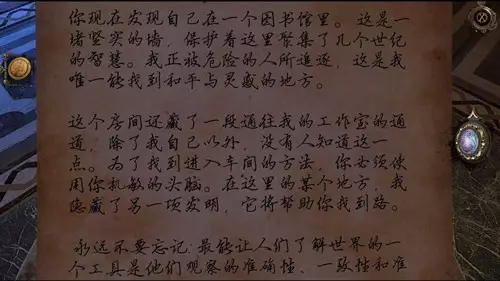 你现在发现自己在一个图书馆里。这是一
堵坚实的墙，保护着这里聚集了几个世纪
的智慧。我正被危险的人所追逐，这是我
唯一能找到和平与灵感的地方。
这个房间还藏了一段通往我的工作室的通
道，除了我自己以外，没有人知道这一
点。为了找到进入车间的方法，你必须使
用你机敏的头脑。在这里的某个地方，我
隐藏了另一项发明，它将帮助你找到路。
永远不要忘记:最能让人们了解世界的一
个工具是他们观察的准确性、一致性和准